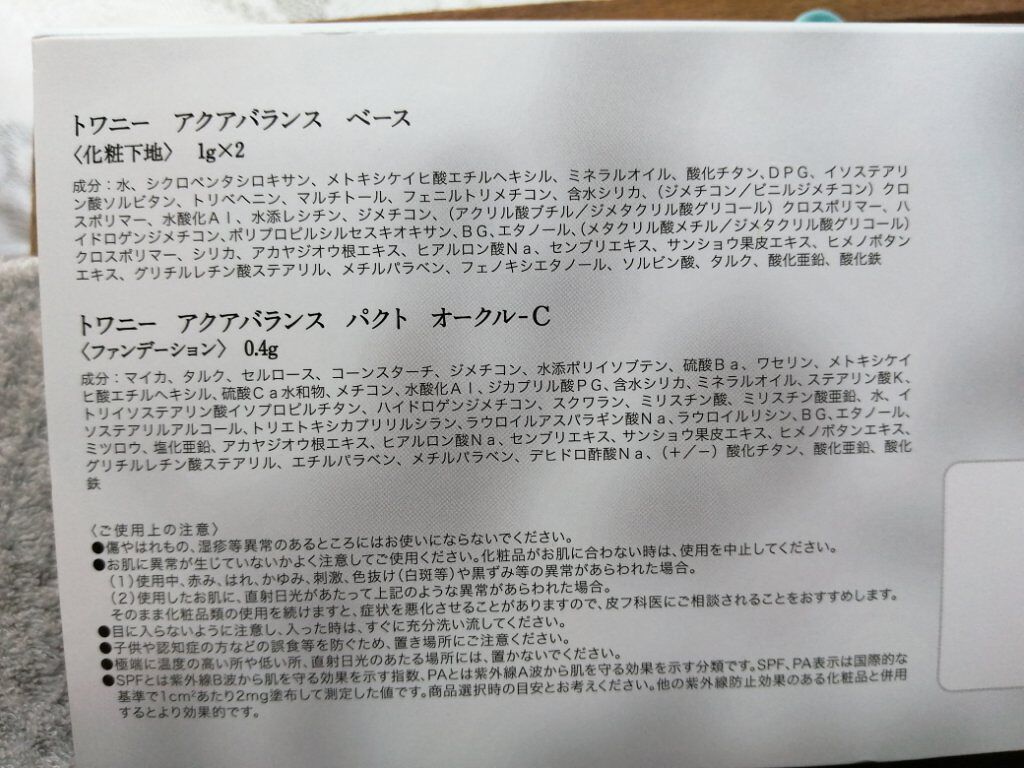 トワニー　アクアバランス　ベース
〈化粧下地〉　1g×2
成分：水、シクロペンタシロキサン、メトキシケイヒ酸エチルヘキシル、ミネラルオイル、酸化チタン、DPG、イソステアリ
ン酸ソルビタン、トリベヘニン、マルチトール、フェニルトリメチコン、含水シリカ、（ジメチコン／ビニルジメチコン）クロ
スポリマー、水酸化Ａｌ、水添レシチン、ジメチコン、（アクリル酸ブチル／ジメタクリル酸グリコール）クロスポリマー、ハ
イドロゲンジメチコン、ポリプロピルシルセスキオキサン、BG、エタノール、（メタクリル酸メチル／ジメタクリル酸グリコール）
クロスポリマー、シリカ、アカヤジオウ根エキス、ヒアルロン酸Ｎａ、センブリエキス、サンショウ果皮エキス、ヒメノボタン
エキス、グリチルレチン酸ステアリル、メチルパラベン、フェノキシエタノール、ソルビン酸、タルク、酸化亜鉛、酸化鉄
トワニー　アクアバランス　パクト　オークル-C
〈ファンデーション〉　0.4g
成分：マイカ、タルク、セルロース、コーンスターチ、ジメチコン、水添ポリイソブテン、硫酸Ｂａ、ワセリン、メトキシケイ
ヒ酸エチルヘキシル、硫酸Ｃａ水和物、メチコン、水酸化Ａｌ、ジカプリル酸ＰＧ、含水シリカ、ミネラルオイル、ステアリン酸Ｋ、
トリイソステアリン酸イソプロピルチタン、ハイドロゲンジメチコン、スクワラン、ミリスチン酸、ミリスチン酸亜鉛、水、イ
ソステアリルアルコール、トリエトキシカプリリルシラン、ラウロイルアスパラギン酸Ｎａ、ラウロイルリシン、BG、エタノール、
ミツロウ、塩化亜鉛、アカヤジオウ根エキス、ヒアルロン酸Ｎａ、センブリエキス、サンショウ果皮エキス、ヒメノボタンエキス、
グリチルレチン酸ステアリル、エチルパラベン、メチルパラベン、デヒドロ酢酸Ｎａ、（＋／－）酸化チタン、酸化亜鉛、酸化
鉄
〈ご使用上の注意〉
●傷やはれもの、湿疹等異常のあるところにはお使いにならないでください。
●お肌に異常が生じていないかよく注意してご使用ください。化粧品がお肌に合わない時は、使用を中止してください。
（1）使用中、赤み、はれ、かゆみ、刺激、色抜け（白斑等）や黒ずみ等の異常があらわれた場合。
（2）使用したお肌に、直射日光があたって上記のような異常があらわれた場合。
そのまま化粧品類の使用を続けますと、症状を悪化させることがありますので、皮フ科医にご相談されることをおすすめします。
●目に入らないように注意し、入った時は、すぐに充分洗い流してください。
●子供や認知症の方などの誤食等を防ぐため、置き場所にご注意ください。
●極端に温度の高い所や低い所、直射日光のあたる場所には、置かないでください。
●SPFとは紫外線B波から肌を守る効果を示す指数、PAとは紫外線A波から肌を守る効果を示す分類です。SPF、PA表示は国際的な
基準で1cm²あたり2mg塗布して測定した値です。商品選択時の目安とお考えください。他の紫外線防止効果のある化粧品と併用
するとより効果的です。